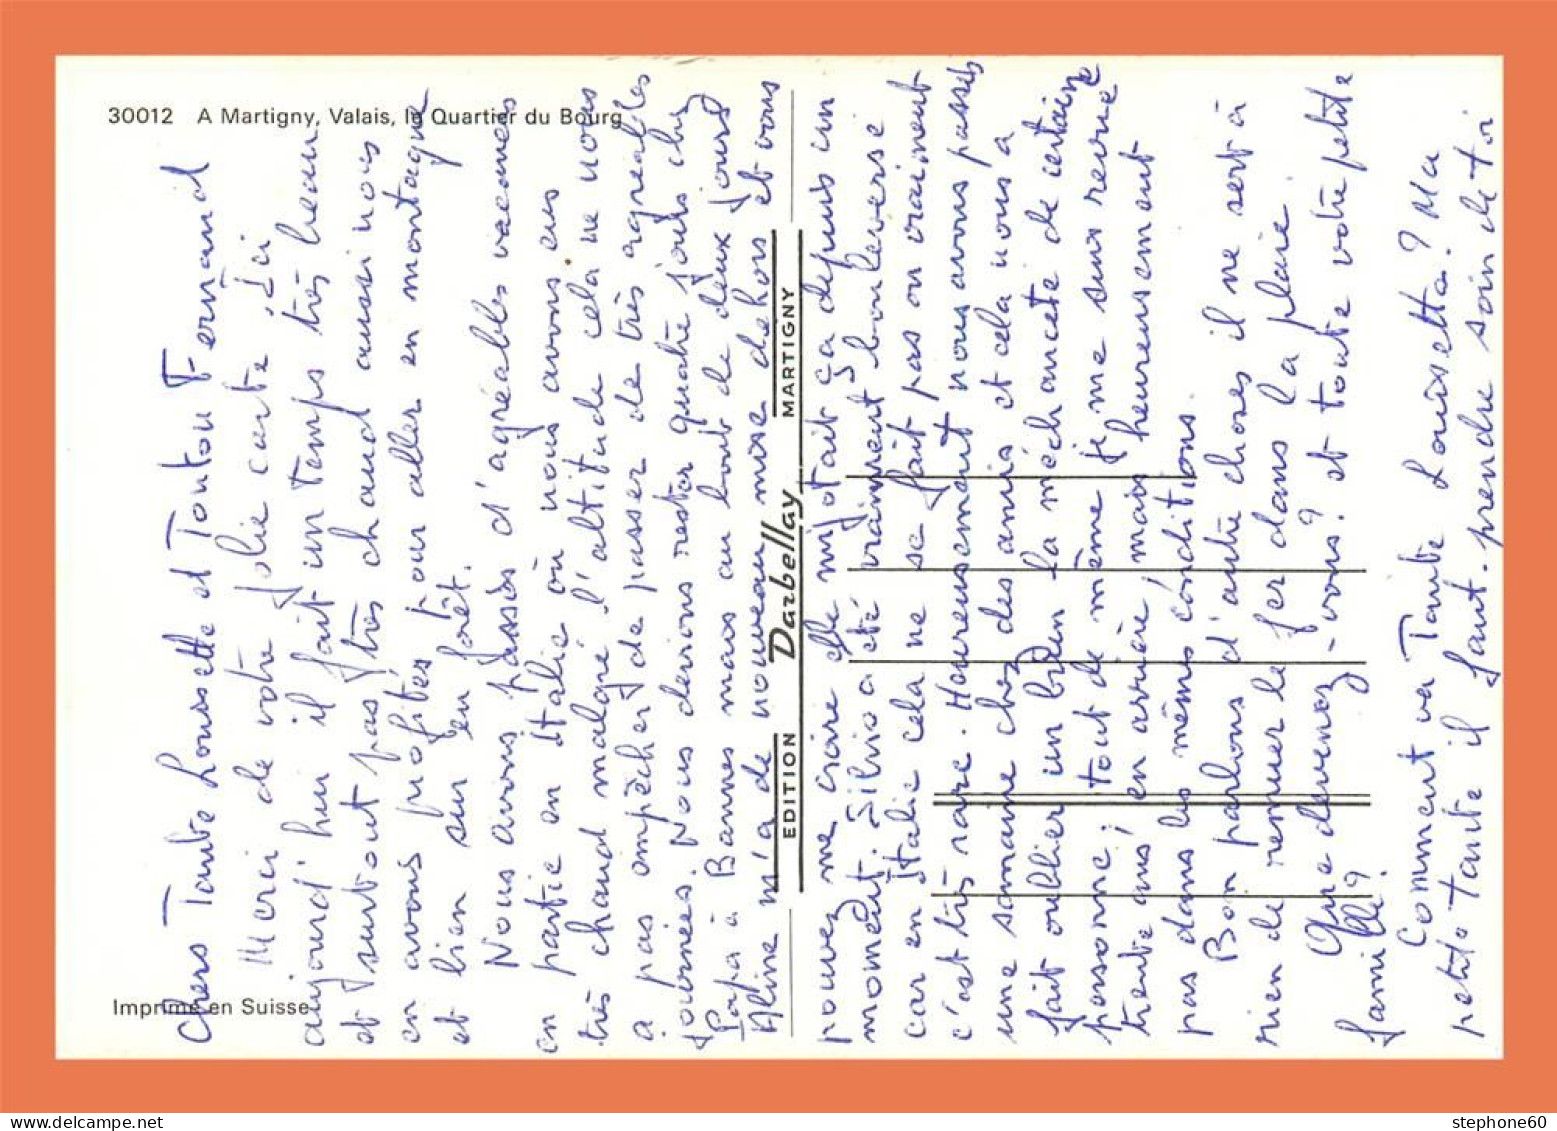 30012 A Martigny, Valais, le Quartier du Bourg
Imprimé en Suisse
EDITION Darbellay MARTIGNY
Chers Tante Louisette et Tonton Fernand
Merci de votre jolie carte, Ici
aujourd'hui il fait un temps très beau
et surtout pas très chaud aussi nous
en avons profités pour aller en montagne
et bien sur en forêt.
Nous avons passés d'agréables vacances
en partie en Italie où nous avons eus
très chaud malgré l'altitude cela ne nous
a pas empêcher de passer de très agréables
journées. Nous devions rester quatre jours chez
Papa à Bannes mais au bout de deux jours
Aline m'a de nouveau mise dehors et vous
pouvez me croire elle mijotait ça depuis un
moment. Silvio a été vraiment bouleversé
car en Italie cela ne se fait pas ou vraiment
c'est très rare. Heureusement nous avons passés
une semaine chez des amis et cela nous a
fait oublier un bien la méchanceté de certaine
personne; tout de même je me suis revue
trente ans en arrière mais heureusement
pas dans les mêmes conditions.
Bon parlons d'autre choses il ne sert à
rien de remuer le fer dans la plaie.
Que devenez-vous? et toute votre petite
famille?
Comment va Tante Louisette? Ma
petite tante il faut prendre soin de toi
stephone60